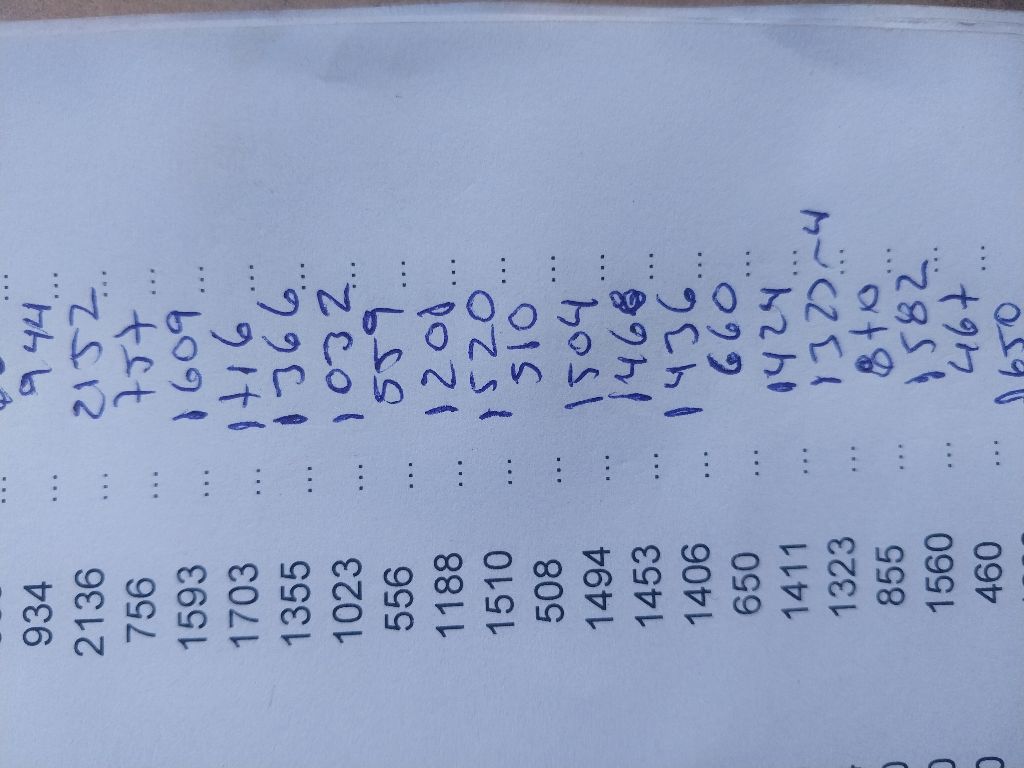 934 ... 944 ...
2136 ... 2152 ...
756 ... 757 ...
1593 ... 1609 ...
1703 ... 1716 ...
1355 ... 1366 ...
1023 ... 1032 ...
556 ... 559 ...
1188 ... 1208 ...
1510 ... 1520 ...
508 ... 510 ...
1494 ... 1504 ...
1453 ... 1468 ...
1406 ... 1436 ...
650 ... 660 ...
1411 ... 1424 ...
1323 ... 1327 ~4 ...
855 ... 870 ...
1560 ... 1582 ...
460 ... 467 ...
... 1650